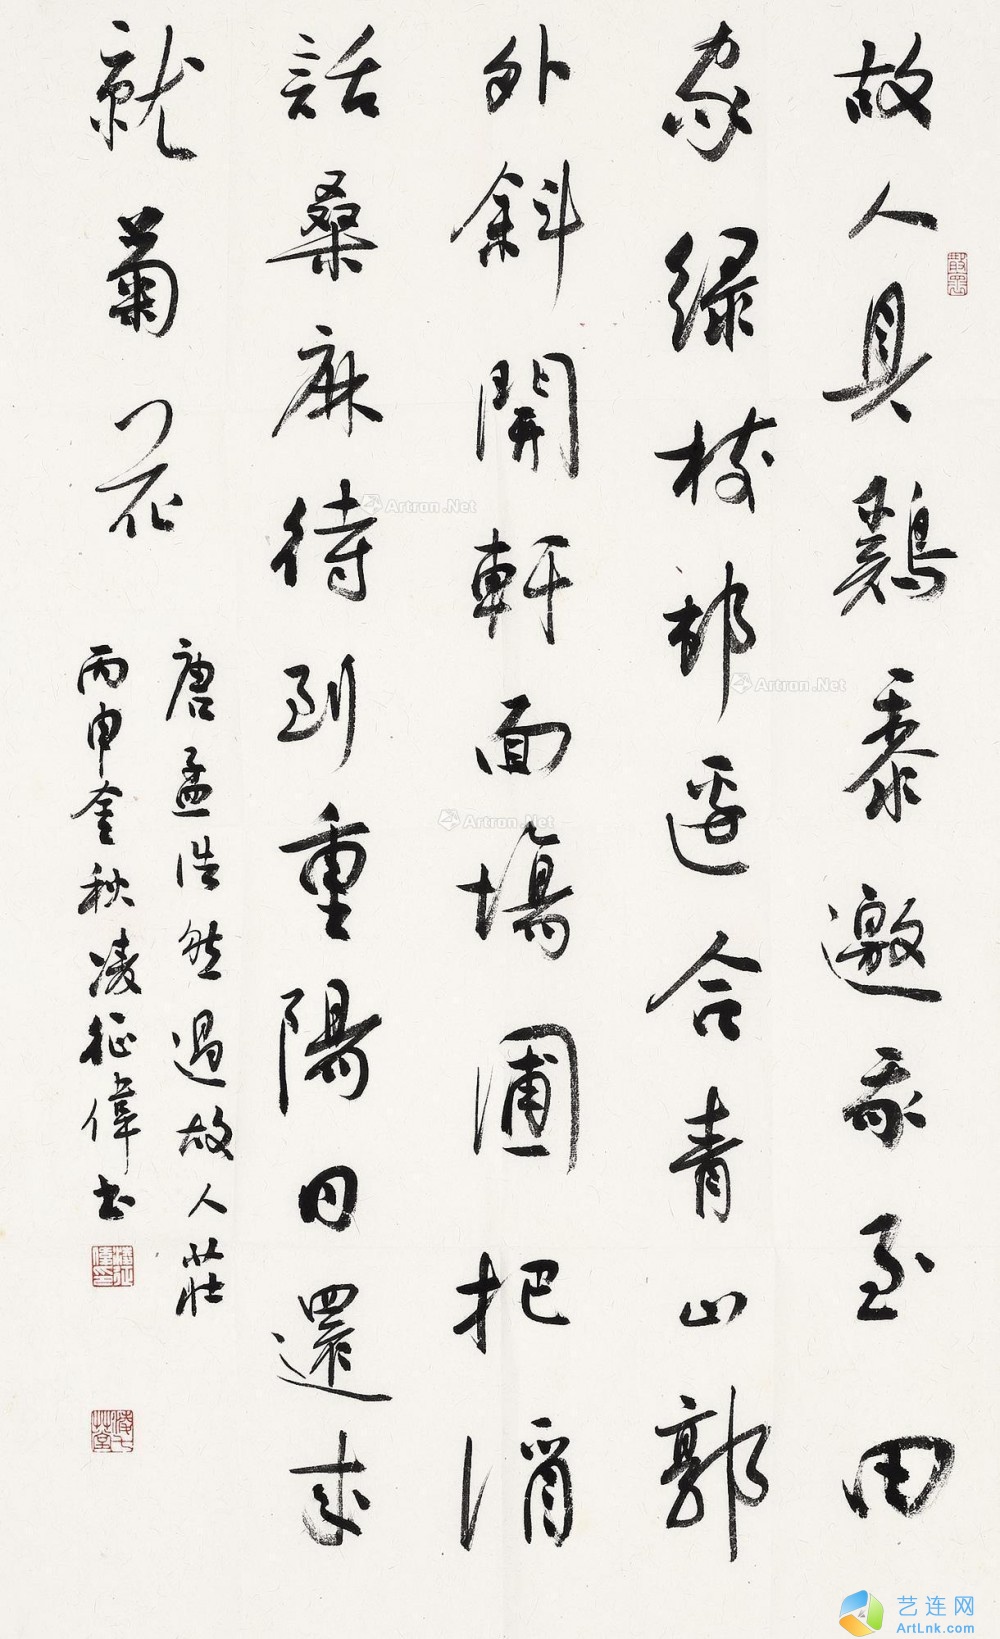 故人具鷄黍邀我至田
家緑樹村邊合青山郭
外斜開軒面場圃把酒
話桑麻待到重陽日還來
就菊花
唐孟浩然過故人莊
丙申金秋凌征偉書
Artron.Net
Artron.Net
Artron.Net
艺连网
ArtLnk.com